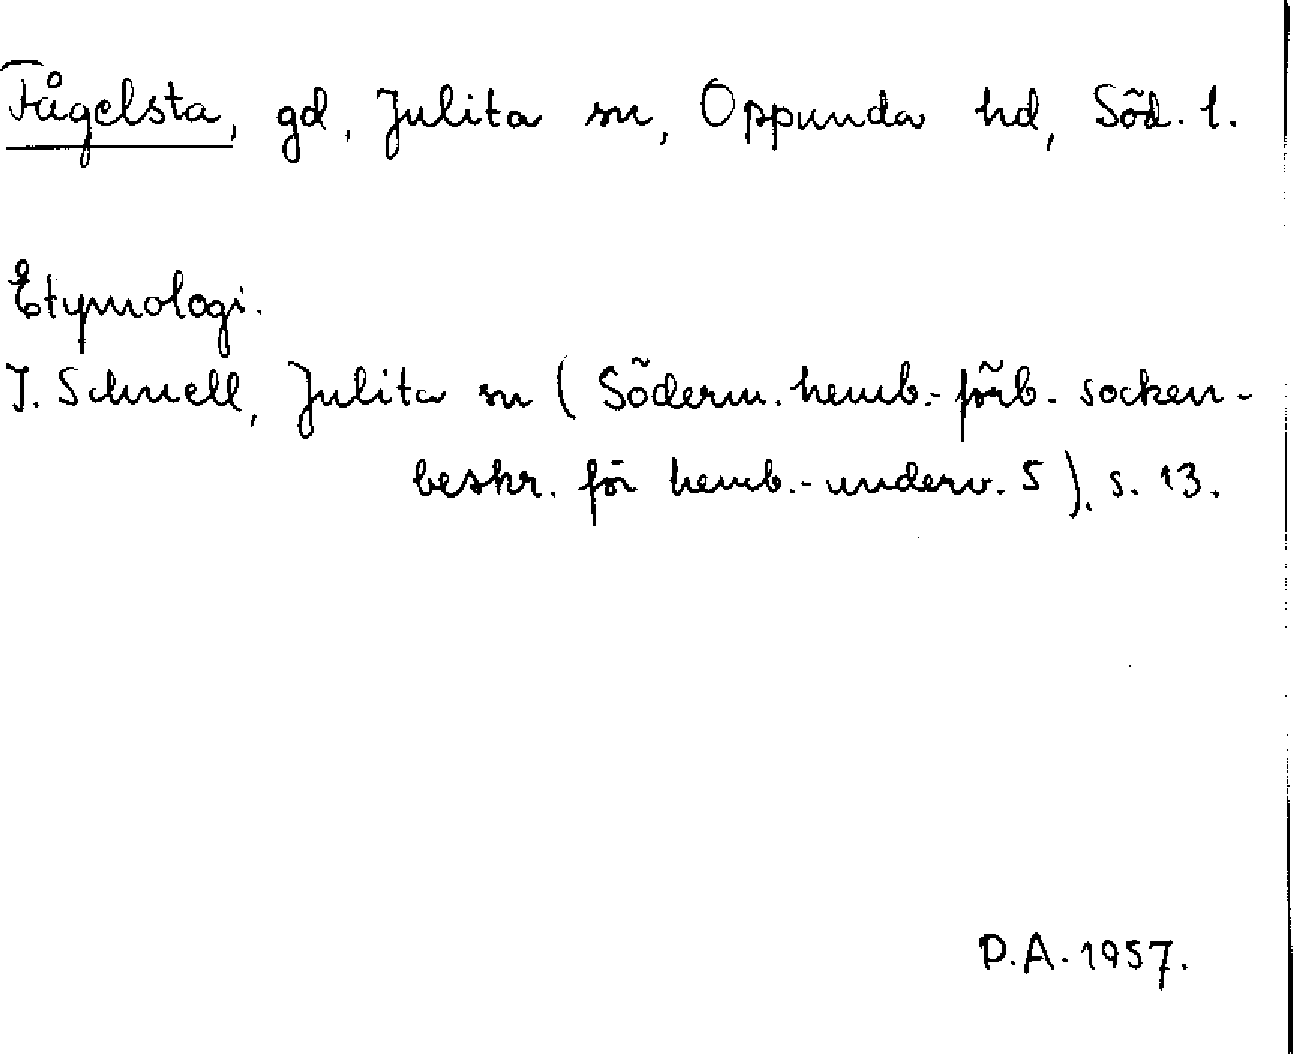 Fågelsta, gd, Julita sn, Oppunda hd, Söd. l.
Etymologi.
I. Schnell, Julita sn (Söderm. hemb.-förb. socken-
beskr. för hemb.-underv. 5), s. 13.
D.A. 1957.